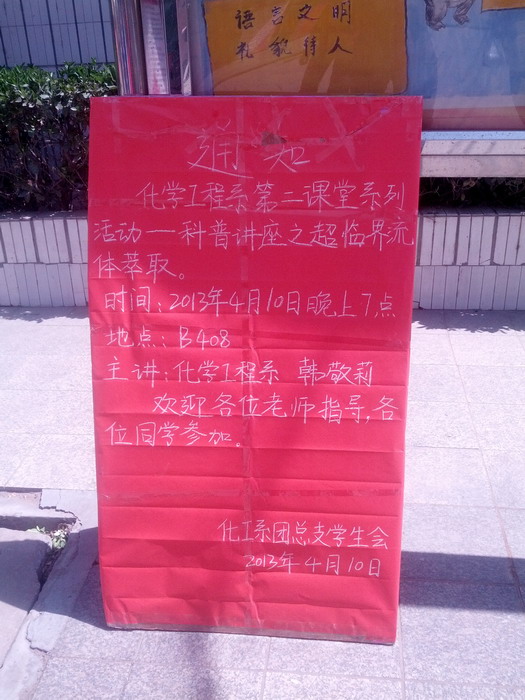 语言文明
礼貌待人
通知
化学工程系第二课堂系列
活动—科普讲座之超临界流
体萃取。
时间:2013年4月10日晚上7点
地点:B408
主讲:化学工程系 韩敬莉
欢迎各位老师指导,各
位同学参加。
化工系团总支学生会
2013年4月10日